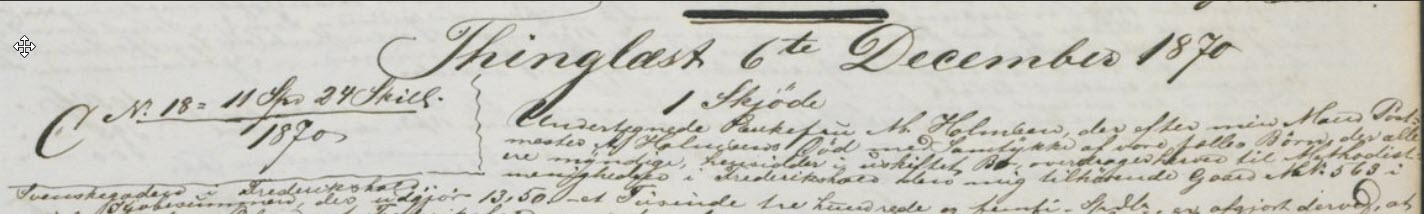 Thinglæst 6te December 1870
C No. 18 = 11 Spd 24 Skill.
1870
1 Skjöde
Undertegnede Enkefru M. Holmboe, der efter min Mand Post-
mester Holmboes Död med Samtykke af vore fælles Børn, der alle
ere myndige, hensidder i uskiftet Bo, overdrager herved til Methodist-
menigheden i Frederikshald den mig tilhørende Gaard No. 563 i
Svenskegaden i Frederikshald
Kjøbesummen, der udgjør 1350 et Tusinde tre hundrede og femti Spdlr, er afgjort derved, at